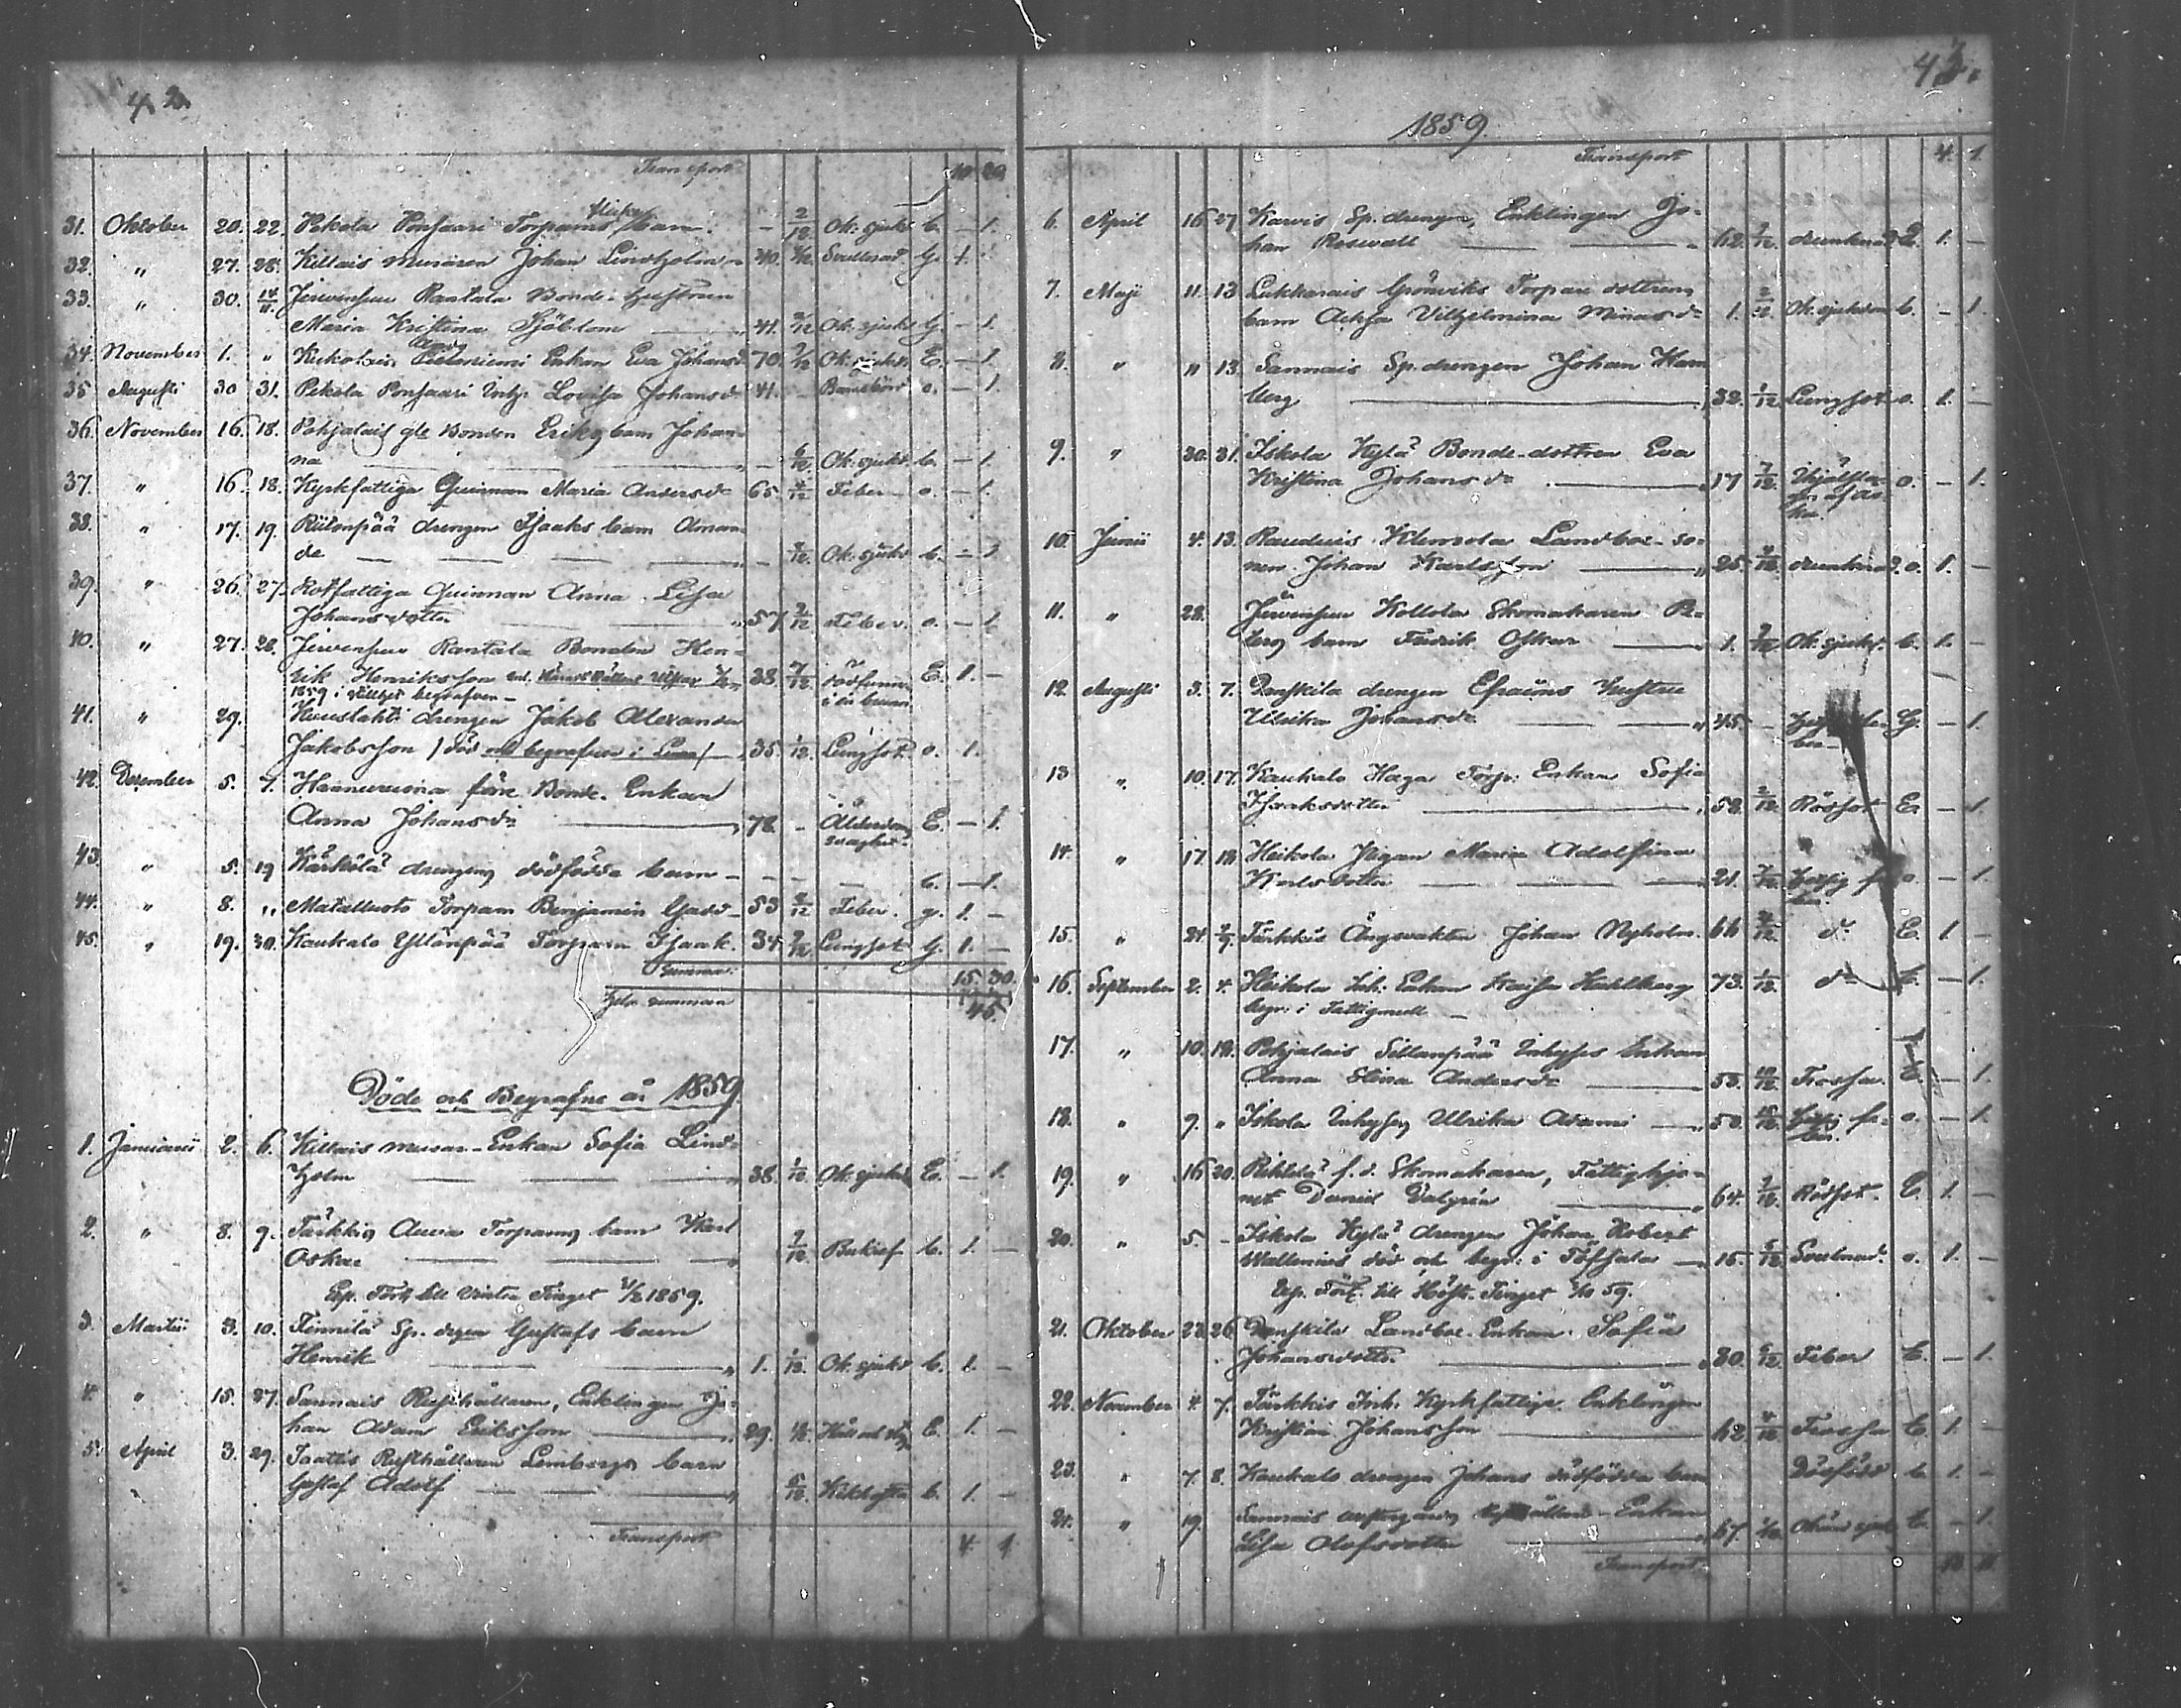 42.
Transport 10. 29
31. Oktober 20. 22. Pekola Ponsaari Torpares barn. – 2/12 Ok: sjukd b. – 1.
32. " 27. 28. Killais muraren Johan Lindholm 40. Svullnad G. 1.
33. " 30. 14/11 Jervensuu Rantala Bonde-hustrun
Maria Kristina Sjöblom 41. Ok. sjukd G. – 1.
34. November 1. " Enkan Eva Johansd. 70. Ok. sjukd. E. – 1.
35 Augusti 30 31. Pekola Ponsaari Inh. Lovisa Johansd. 41. – Barnsbörd o. – 1.
36. November 16. 18. Pohjalais gle Bonden Eriks barn Johan-
na – 6/12 Ok: sjukd. b. – 1.
37. " 16. 18. Kyrkfattiga Quinnan Maria Andersdr 65. Feber o. – 1.
38. " 17. 19. drengen Isaaks barn Aman-
da – Ok. sjukd b. – 1
39. " 26. 27. Rotfattiga Quinnan Anna Lisa
Johansdotter 57. Feber. o. – 1.
40. " 27. 28. Jervensuu Rantala Bonden Hen-
rik Henriksson 38. 7/12 E. 1. –
1859 i stillhet begrafven –
41. " 29. drengen Jakob Alexander
Jakobsson / död och begrafven i / 35. 1/12 Lungsot o. 1.
42. December 5. 7. förre Bonde-Enkan
Anna Johansdr 78. – Ålderdoms E. – 1.
svaghet.
43. " 5. 19 Kärkölä drengens dödfödda barn – – – – b. – 1.
44. " 8. " Torparn Benjamin 53 Feber. g. 1. –
45. " 19. 30. Kaukalo Yllänpää Torparn Isaak. 34. Lungsot G. 1. –
Summa 15. 30.
Hela summan 45.
Döde och Begrafne år 1859
1. Januarii 2. 6. Killais murar-Enkan Sofia Lind-
holm 38. 1/12 Ok. sjukd E. – 1.
2. " 8. 9. Tärkkis Torpares barn Karl
Oskar 7/12 b. 1. –
Exp. Fört. till Vinter Tinget 1/2 1859.
3. Martii 3. 10. Finnilä Sp. drgen Gustafs barn
Henrik 1. 1/12 Ok. sjukd b. 1. –
4. " 15. 27. Sannais Rusthållaren, Enklingen Jo-
han Adam Eriksson 29. E. 1. –
5. April 3. 29. Taattis Rusthållaren Lembergs barn
Gustaf Adolf 5/12 Kikhosta b. 1. –
Transport 4 1
43.
1859
Transport 4. 1.
6. April 16 27 Karvis Sp. drengen, Enklingen Jo-
han Rosevall 62. drunknad E. 1. –
7. Maji 11. 13 Lukkarais Grönviks Torpare dottrens
barn Vilhelmina Minasdr 1. Ok. sjukdom b. – 1.
8. " 11 13. Sannais Sp. drengen Johan Ham
berg 32. 1/12 Lungsot o. 1. –
9. " 30. 31. Iskola Kylä Bonde-dottren Eva
Kristina Johansdr 17 7/12 Ihjälslagen af ås- o. – 1.
ka.
10. Junii 4. 13. Klemola Landboe-so-
nen Johan Karlsson 25. drunknad. o. 1. –
11. " 28. Jervensuu Kollola Skomakaren
berg barn Fredrik Oskar 1. Ok. sjukd. b. 1. –
12. Augusti 3. 7. Danskila drengen Efraims hustru
Ulrika Johansdr 45. – G. – 1.
13 " 10. 17. Kaukalo Haga Torp. Enkan Sofia
Isaksdotter 58. 2/12 Rödsot E. – 1.
14. " 17 19 Heikola Pigan Maria Adolfina
Karlsdotter 21. 7/12 hetsig fe- o. – 1.
ber.
15. " 24. Tärkkis Ängsvakten Johan Nyholm. 66 do E. 1 –
16. September 2. 4. Heikola Inh. Enkan Kaisa Hahlberg 73. 1/12 do E. – 1.
begr. i Fattigmull –
17. " 10. 12. Pohjalais Sillanpää Inhyses Enkan
Anna Stina Andersdr 53. 10/12 Frossa. E. – 1.
18. " 9. " Iskola Inhyses Ulrika Adami 50. hetsig fe- o. – 1.
ber.
19. " 16 20. f. d. Skomakaren, Fattighjo-
net Daniel Dalgrén 64. Rödsot. E. 1. –
20. " 5. – Iskola Kylä drengen Johan Robert
Wallenius död och begr. i Töfsala 15. Svulnad. o. 1. –
Exp. Fört. till Höste-Tinget 1/10 59.
21. Oktober 23 26 Danskila Landboe-Enkan Sofia
Johansdotter 80. Feber E. – 1.
22. November 4 7. Tärkkis Inh. Kyrkfattige Enklingen
Kristian Johansson 62. Frossa E. 1. –
23. " 7. 8. Kaukalo drengen Johans dödfödda barn Dödfödd b. 1. –
24. " 19. Sannais Rusthållare-Enkan
Lisa Olofsdotter 67. E. – 1.
Transport